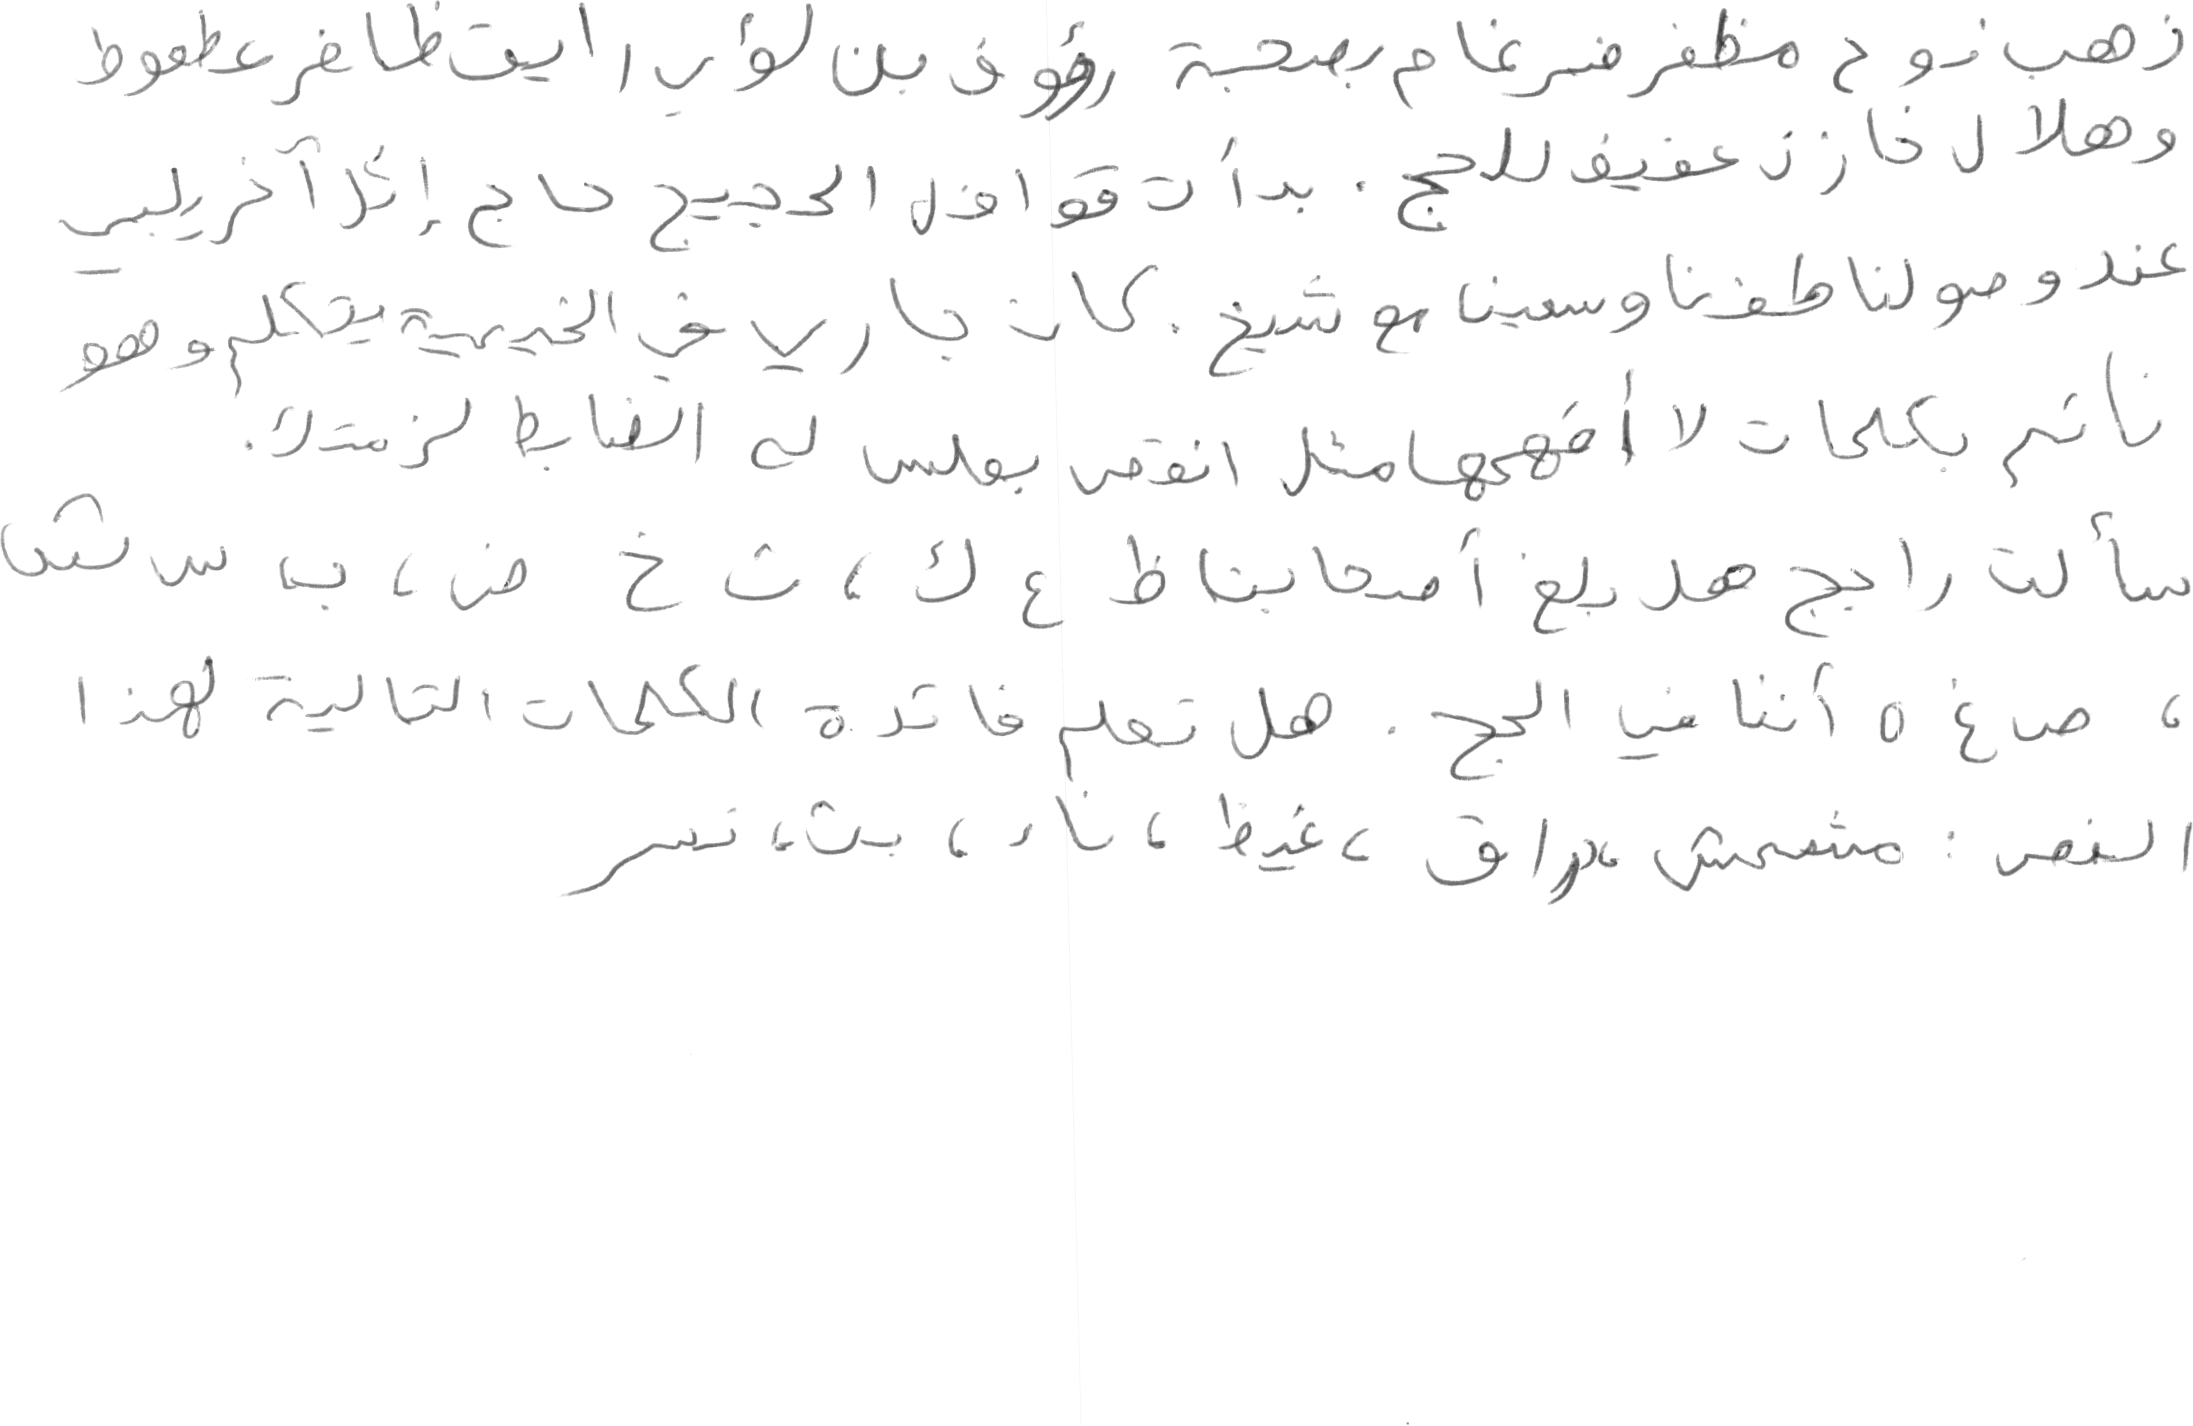 ذهب نوح مظفر ضرغام بصحبة رؤوف بن لؤي رايق ظافر عطعوط
وهلال خازن عفيف للحج . بدأت قوافل الحجيج حاج إثر آخر يلبي
عند وصولنا طفنا وسعينا مع شيخ . كان جاري في الخيمة يتكلم وهو
نائم بكلمات لا أفهمها مثل انقص بعلس له الضابط لزمتك .
سألت راجح هل بلغ أصحابنا ظ ع ك ، ث خ ض ، ب س ش
، ص غ ه أننا في الحج . هل تعلم فائدة الكلمات التالية لهذا
النص : مشمش ، براق ، غيظ ، ناء ، بث ، نسر